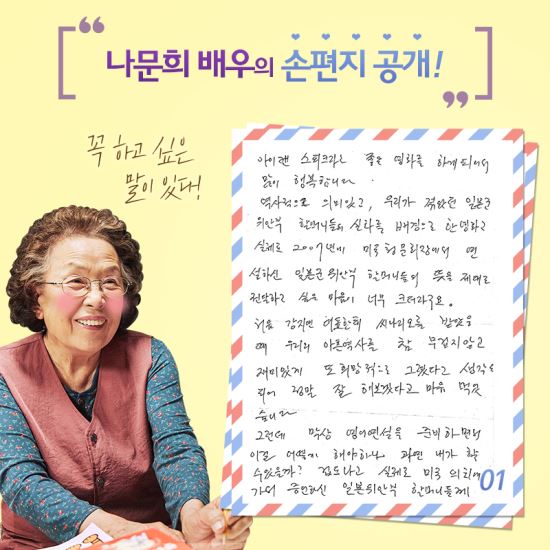 나문희 배우의 손편지 공개!
꼭 하고 싶은
말이 있다!
아이캔 스피크라는 좋은 영화를 하게 되어서
많이 행복합니다.
역사적으로 의미있고, 우리가 겪었던 일본군
위안부 할머니들의 실화를 배경으로 한 영화라
실제로 2007년에 미국 청문회장에서 연
설하신 일본군 위안부 할머니들의 뜻을 제대로
전달하고 싶은 마음이 너무 크더라구요.
처음 강지연 시나리오를 받았을
때 우리의 아픈역사를 참 무겁지않고
재미있게 또 희망적으로 그렸다고 생각
되어 정말 잘 해보겠다고 마음 먹었
습니다
그런데 막상 영어연설을 준비하면서
이걸 어떻게 해야하나 과연 내가 할
수있을까? 겁도나고 실제로 미국 의회에
가서 증언하신 일본위안부 할머니들께
01